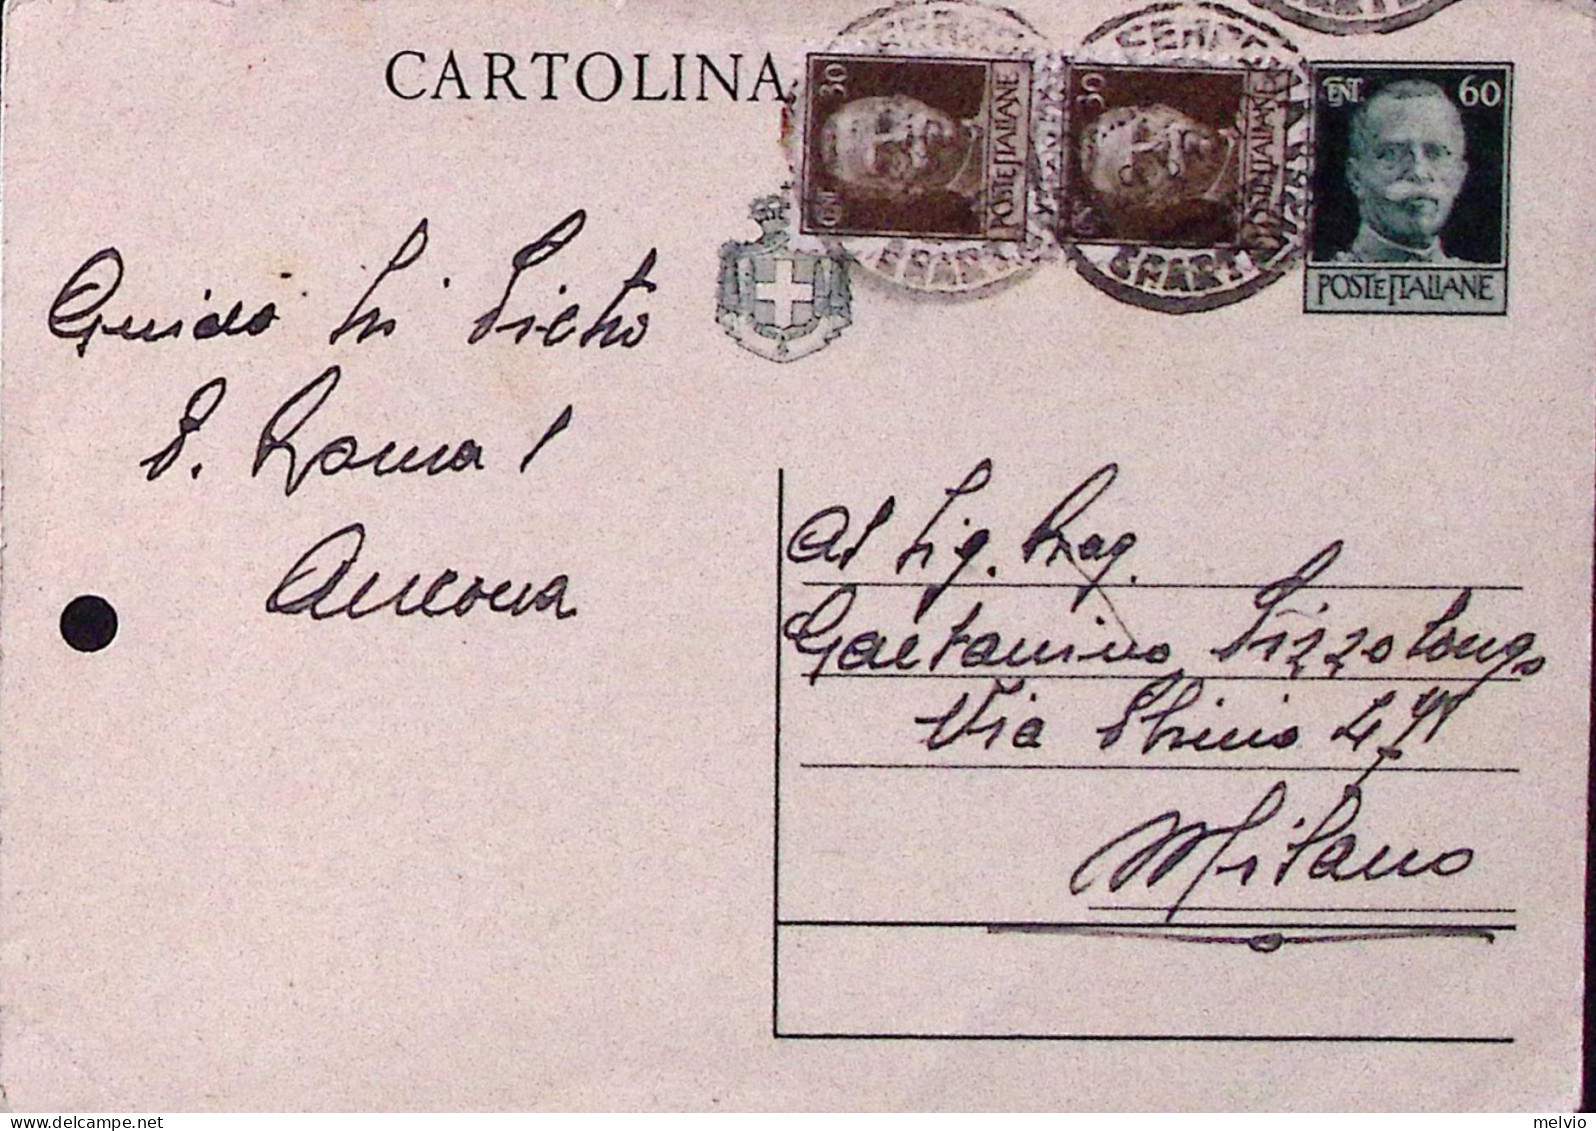 CARTOLINA
30
CENT.
POSTE ITALIANE
30
POSTE ITALIANE
CENT. 60
POSTE ITALIANE
Guido Di Pietro
P. Roma 1
Ancona
Al Sig. Rag.
Gaetanino Pizzolongo
Via Plinio
Milano
delcampe.net
melvio